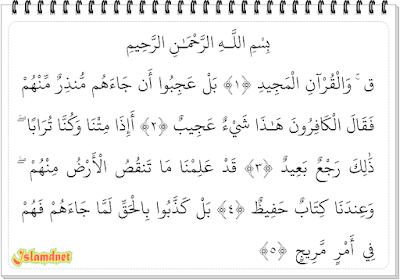 بِسْمِ اللَّـهِ الرَّحْمَـٰنِ الرَّحِيمِ
ق ۚ وَالْقُرْآنِ الْمَجِيدِ ﴿١﴾ بَلْ عَجِبُوا أَن جَاءَهُم مُّنذِرٌ مِّنْهُمْ
فَقَالَ الْكَافِرُونَ هَـٰذَا شَيْءٌ عَجِيبٌ ﴿٢﴾ أَإِذَا مِتْنَا وَكُنَّا تُرَابًا ۖ
ذَٰلِكَ رَجْعٌ بَعِيدٌ ﴿٣﴾ قَدْ عَلِمْنَا مَا تَنقُصُ الْأَرْضُ مِنْهُمْ ۖ
وَعِندَنَا كِتَابٌ حَفِيظٌ ﴿٤﴾ بَلْ كَذَّبُوا بِالْحَقِّ لَمَّا جَاءَهُمْ فَهُمْ
فِي أَمْرٍ مَّرِيجٍ ﴿٥﴾
Islamdnet